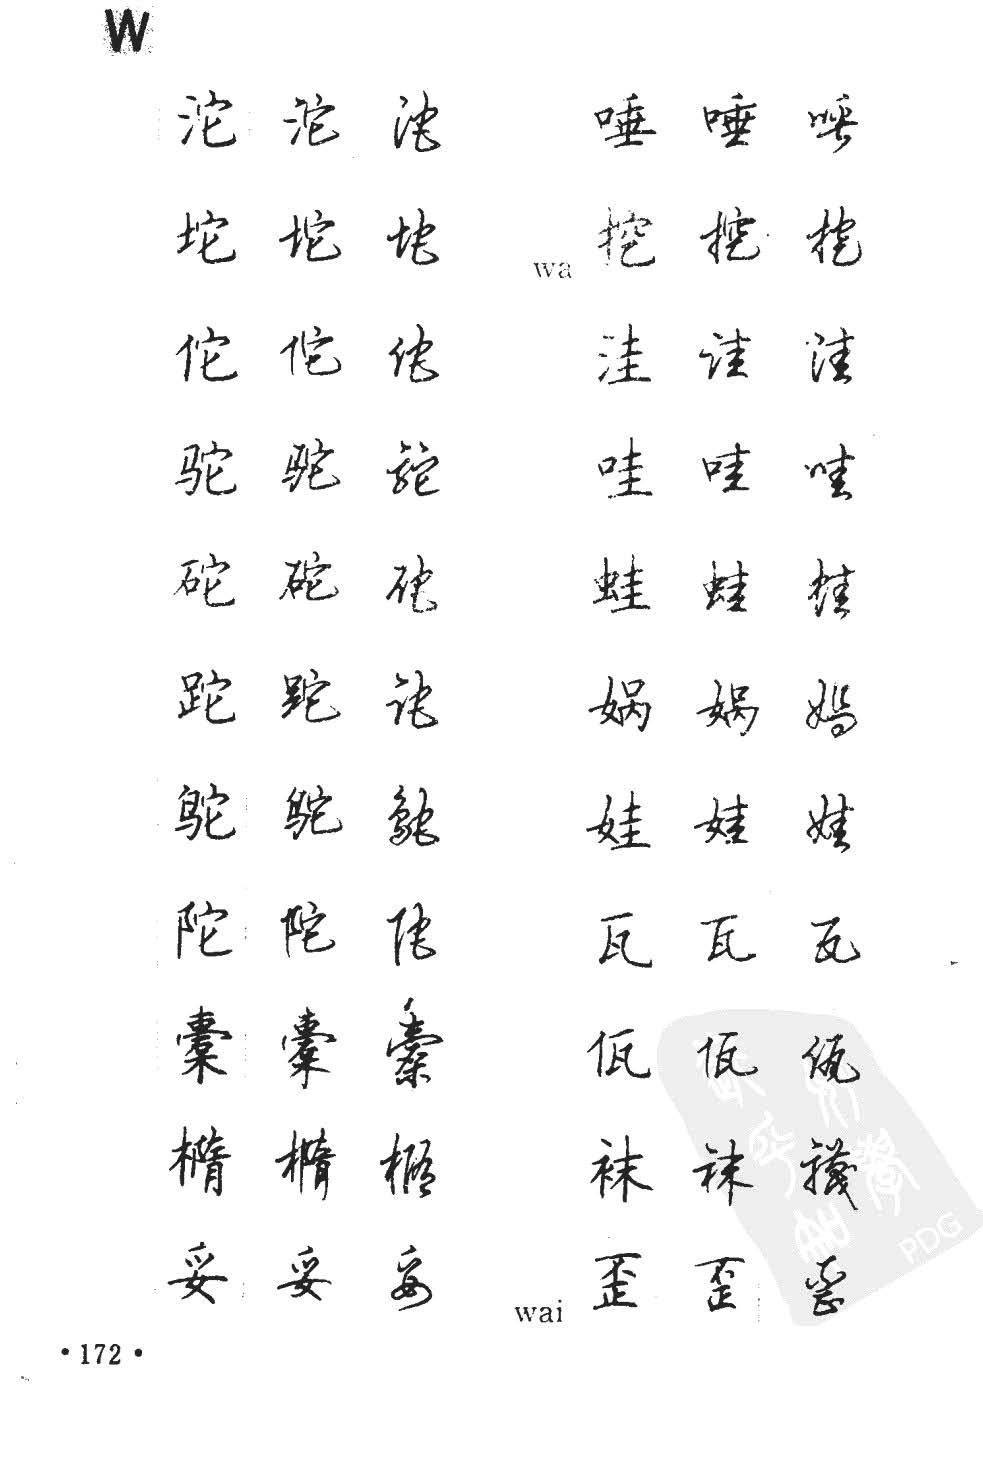 W
沱 沱 沱
坨 坨 坨
佗 佗 佗
驼 驼 驼
砣 砣 砣
跎 跎 跎
鸵 鸵 鸵
陀 陀 陀
橐 橐 橐
椭 椭 椭
妥 妥 妥
唾 唾 唾
wa 挖 挖 挖
洼 洼 洼
哇 哇 哇
蛙 蛙 蛙
娲 娲 娲
娃 娃 娃
瓦 瓦 瓦
佤 佤 佤
袜 袜 襪
wai 歪 歪 歪
·172·
PDG